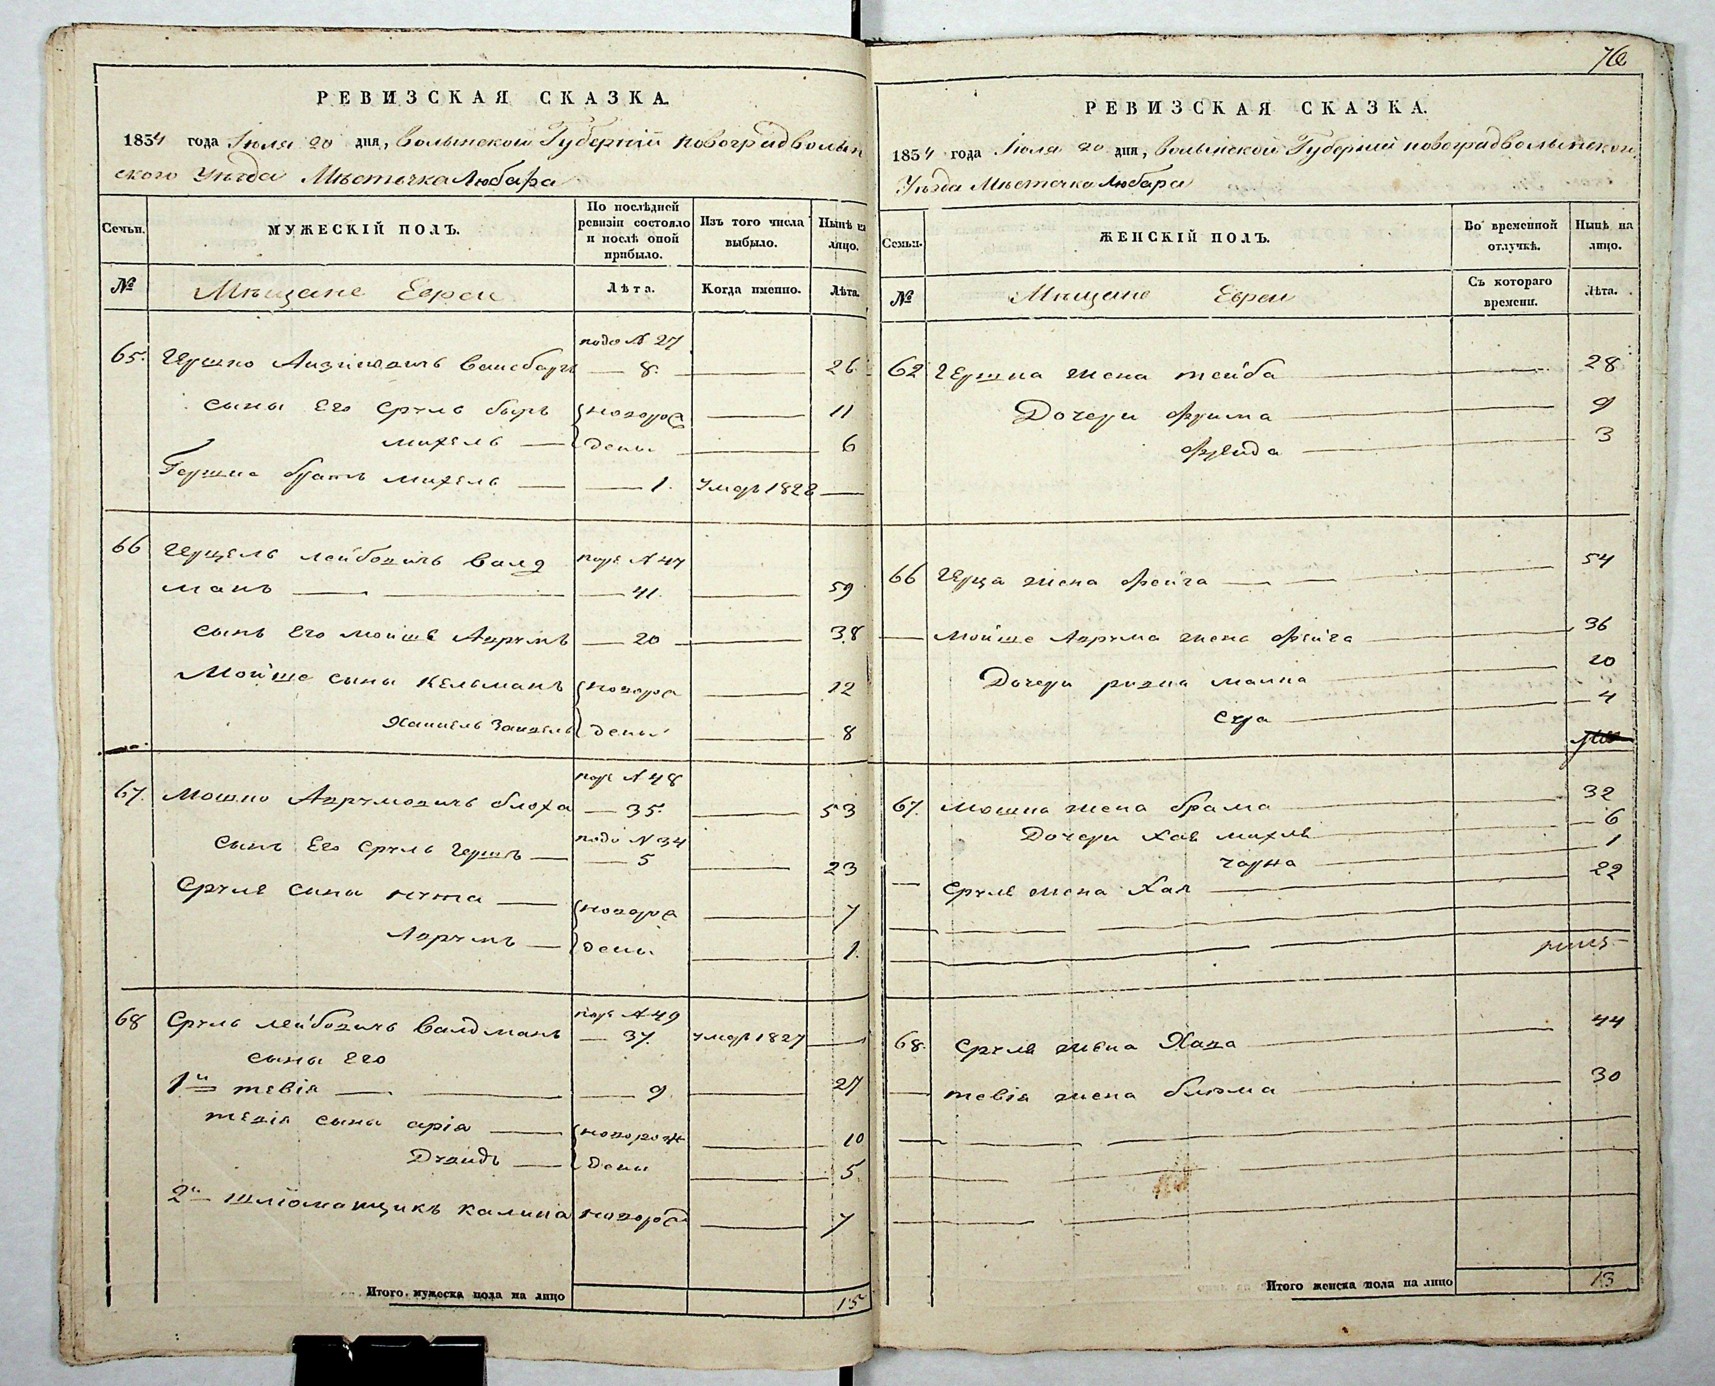 РЕВИЗСКАЯ СКАЗКА.
1854 года Іюля 20 дня, Волынской Губерніи Новоградволын
ского Уѣзда Мѣстечка Любара
Семьи.
МУЖЕСКІЙ ПОЛЪ.
По послѣдней ревизіи состояло и послѣ оной прибыло.
Изъ того числа выбыло.
Нынѣ на лицо.
№
Мѣщане Евреи
Лѣта.
Когда именно.
Лѣта.
подъ № 27
65. Гершко 8. 26
сыны Его Сруль новорож 11
Михель дены 6
Гершка братъ Михель 1. умер 1828
66 Лейбовичъ Валд подъ № 47
манъ 41. 59
сынъ Его Мойше Аврумъ 20 38
Мойше сыны Кельманъ новорож 12
дены 8
подъ № 48
67. Мошко Аврумовичъ Блоха 35. 53
подъ № 34
сынъ Его Сруль Гершъ 5 23
Сруля сыны Нута новорож 7
Аврумъ дены 1.
подъ № 49
68 Сруль Лейбовичъ Валдманъ 37. умер 1827
сыны Его
1й Тевія 9 27
Тевія сыны Арія новорож 10
Давидъ дены 5
2й новорож 7
Итого мужеска пола на лицо 15
76
РЕВИЗСКАЯ СКАЗКА.
1854 года Іюля 20 дня, Волынской Губерніи Новоградволынского
Уѣзда Мѣстечка Любара
Семьи.
ЖЕНСКІЙ ПОЛЪ.
Во временной отлучкѣ.
Нынѣ на лицо.
№
Мѣщане Евреи
Съ котораго времени.
Лѣта.
62 Гершка жена Тейба 28
Дочери Фрима 9
Фрейда 3
66 жена Фейга 54
Мойше Аврума жена Фейга 36
Дочери Ривка Малка 20
Сура 4
67. Мошка жена Брама 32
Дочери Хая 6
1
Сруля жена Хая 22
68. Сруля жена Хана 44
Тевія жена Блюма 30
Итого женска пола на лицо 13